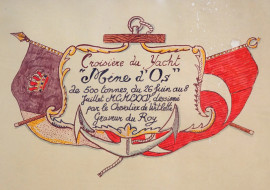 Croisière du Yacht
"Mène d'Os"
de 600 tonnes, du 26 Juin au 8
Juillet MCMXXXV, dessiné
par le Chevalier de
Graveur du Roy